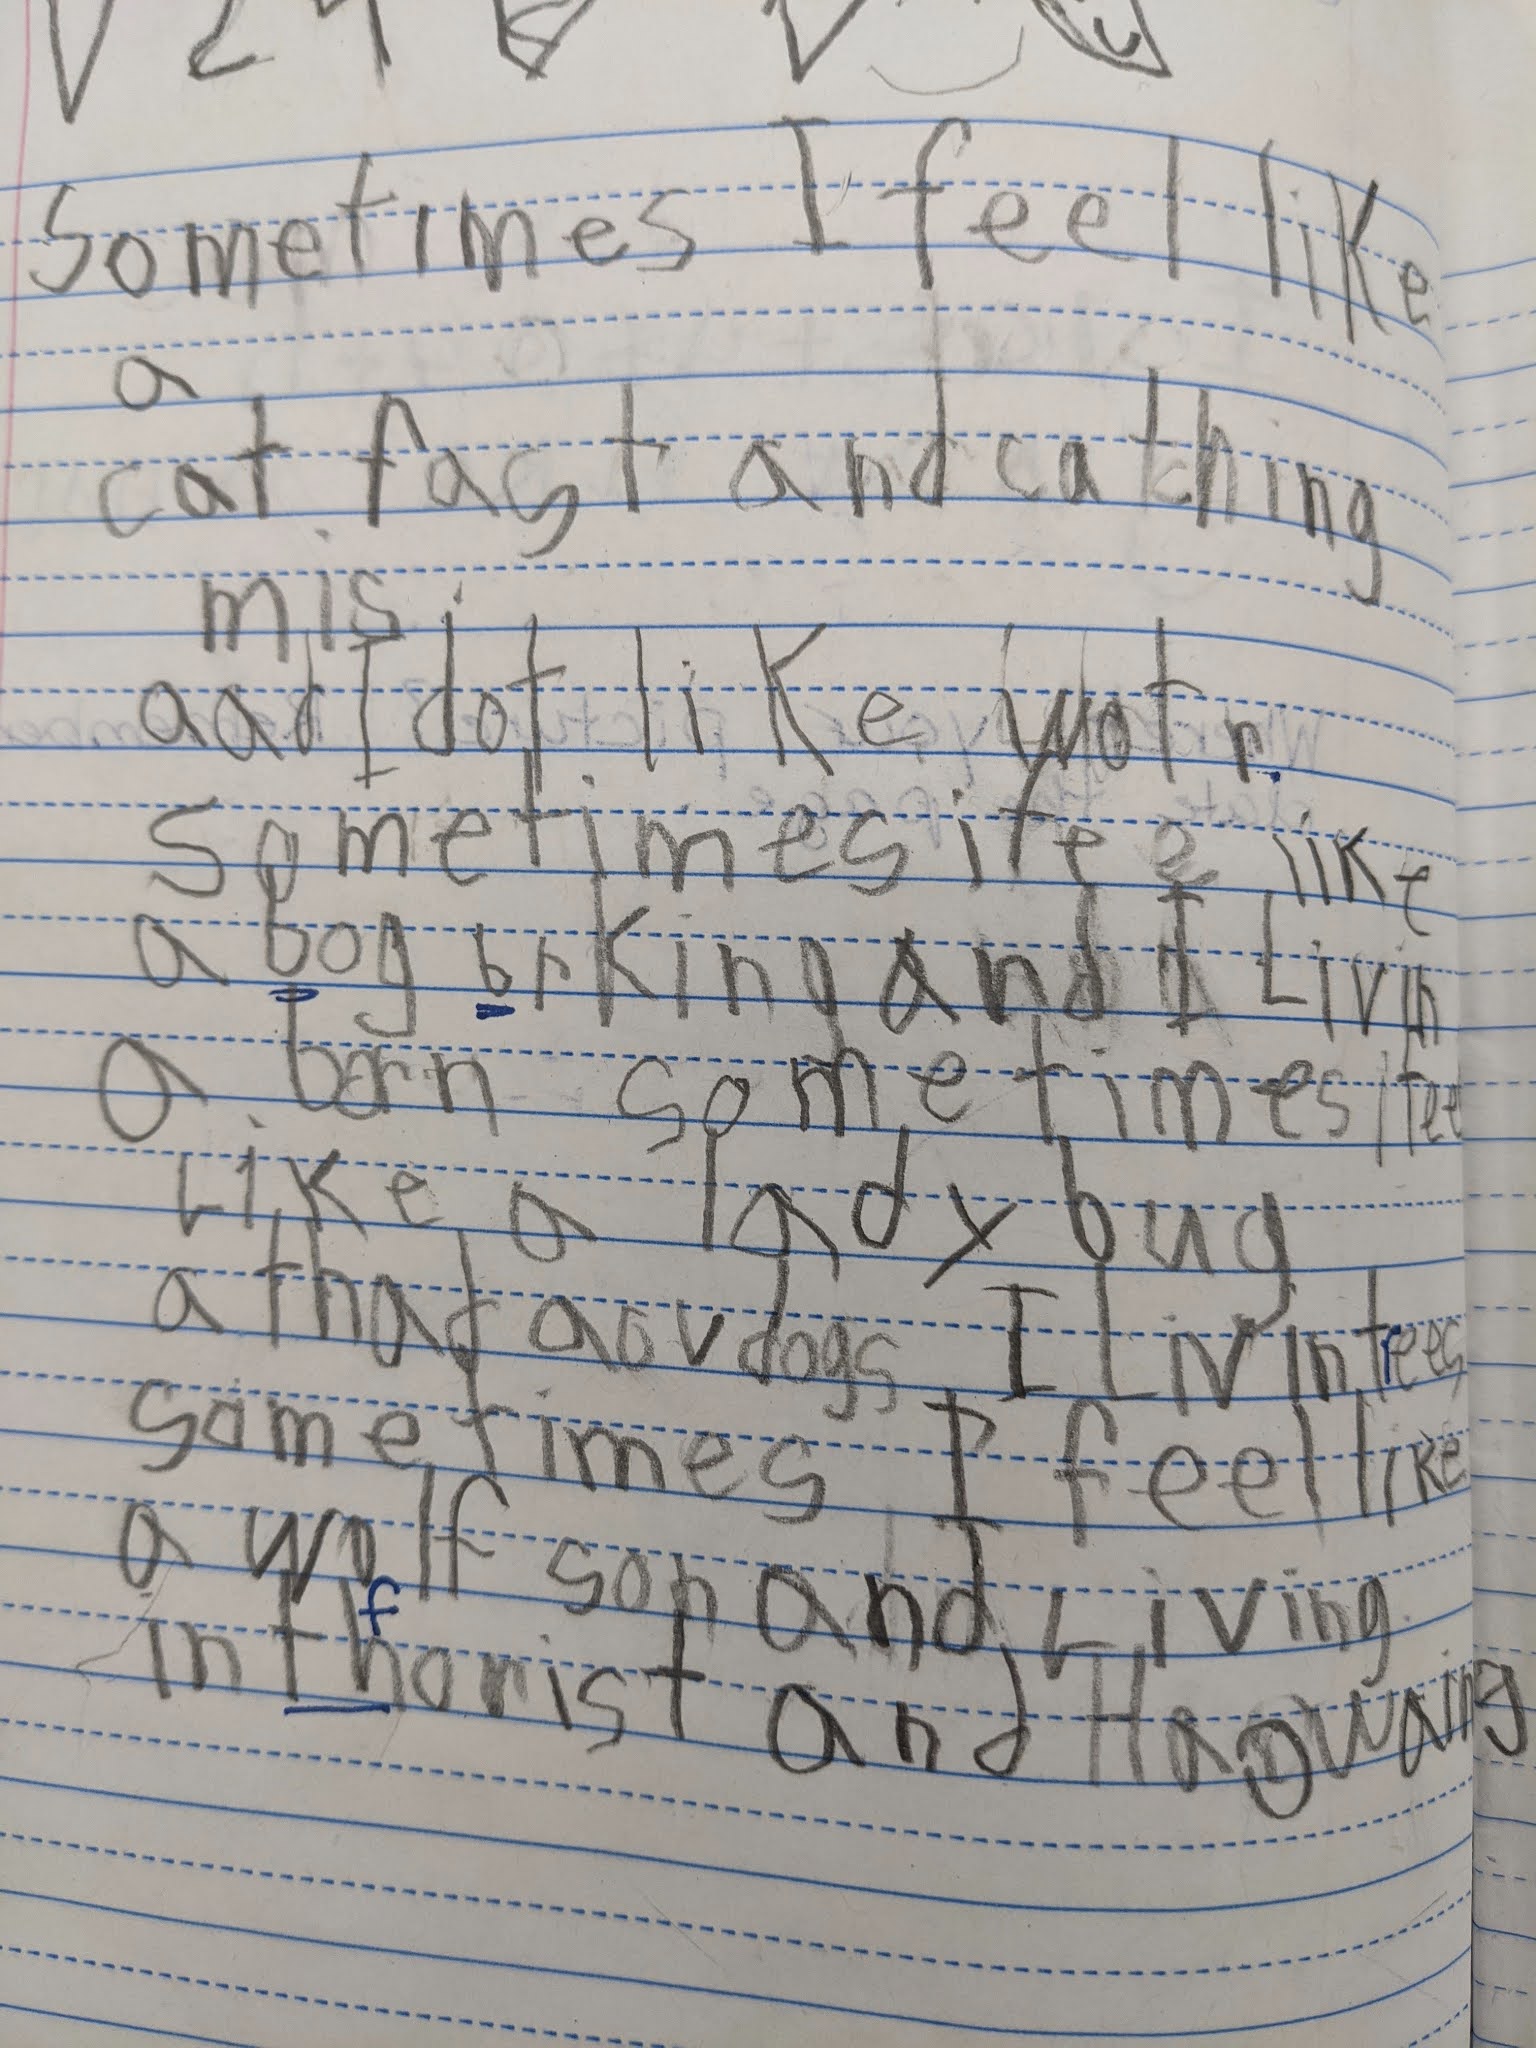 Sometimes I feel like
a
cat fast and cathing
mis.
aad I dot like wotr.
Sometimes i fee like
a bog brking and I Livin
a barn sometimes i fee
Like a ladybug
a that aov dogs I Liv in trees
sometimes I feel like
a wolf son and Living
f
in thorist and Haowaing